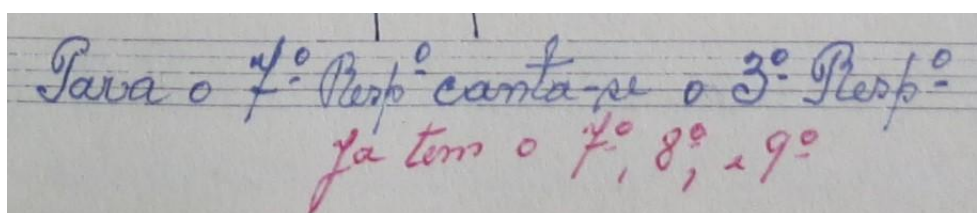 Para o 7º Respº canta-se o 3º Respº
Ja tem o 7º, 8º, e 9º